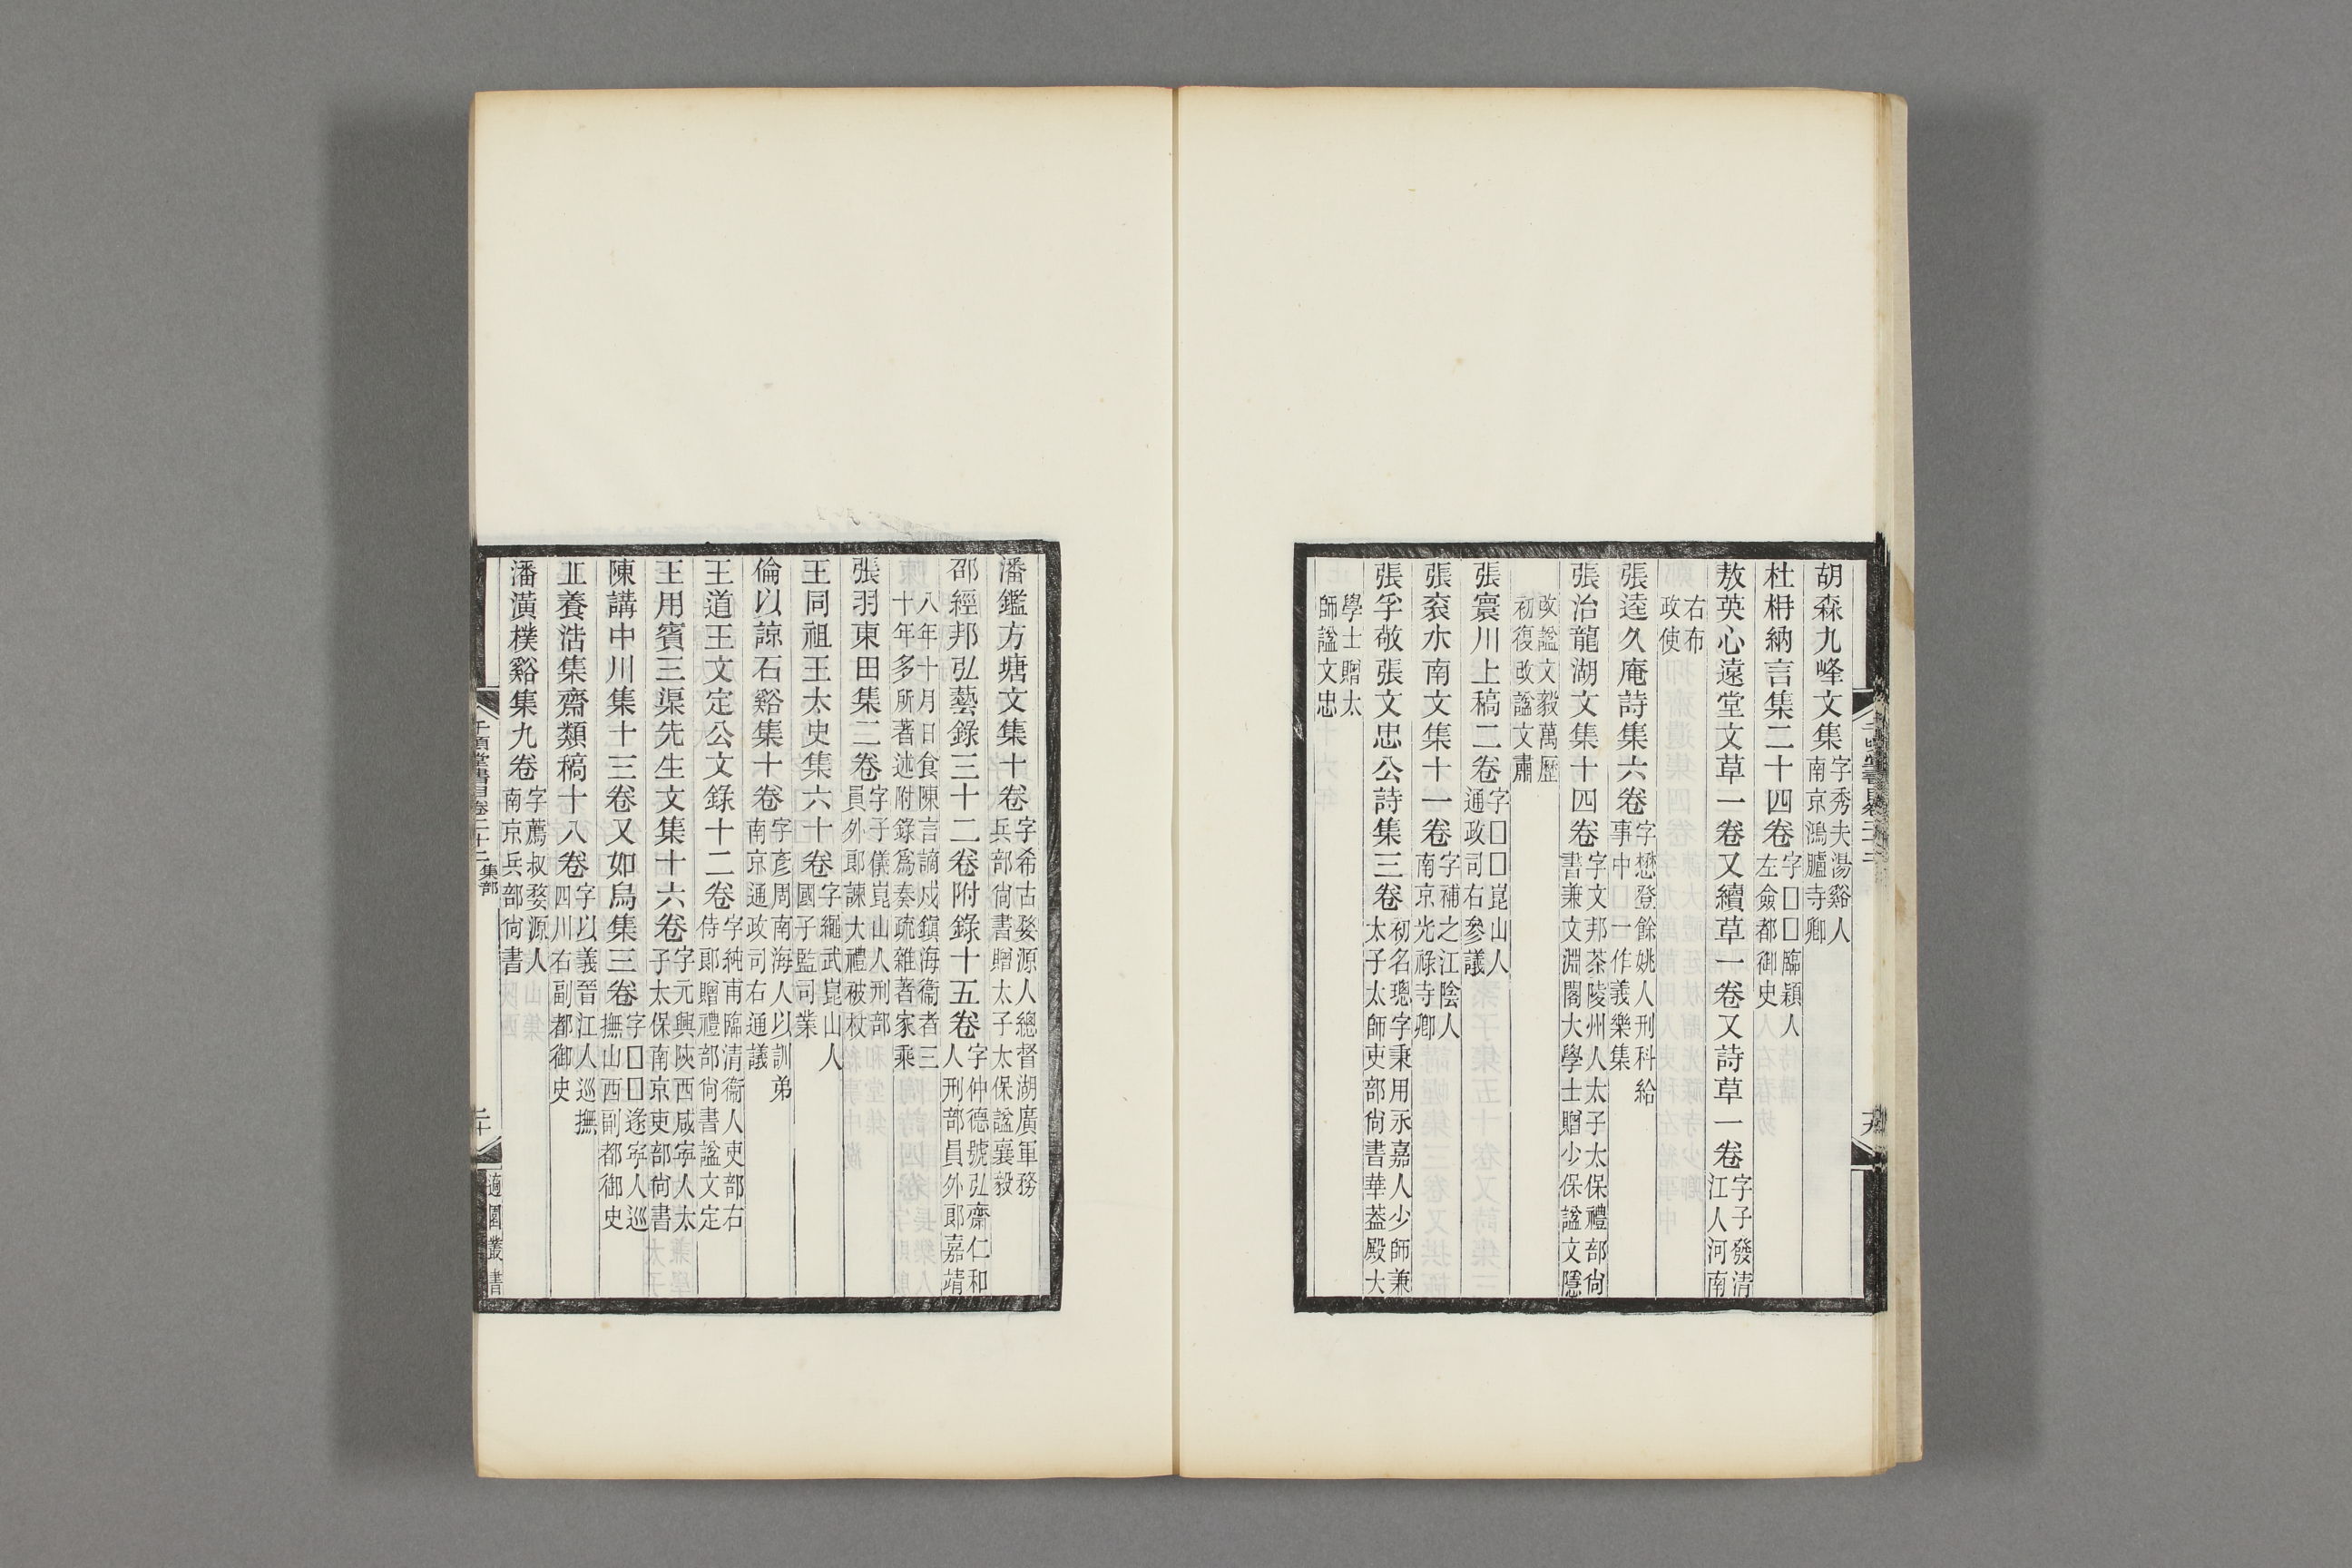 胡森九峰文集字秀夫湯谿人南京鴻臚寺卿
杜柟納言集二十四卷字□□臨潁人左僉都御史
敖英心遠堂文草一卷又續草一卷又詩草一卷字子發清江人河南
右布政使
張逵久庵詩集六卷字懋登餘姚人刑科給事中一作義樂集
張治龍湖文集十四卷字文邦茶陵州人太子太保禮部尚書兼文淵閣大學士贈少保諡文隱
改諡文毅萬歷初復改諡文肅
張寰川上稿二卷字□□崑山人通政司右參議
張袞水南文集十一卷字補之江陰人南京光祿寺卿
張孚敬張文忠公詩集三卷初名璁字秉用永嘉人少師兼太子太師吏部尚書華蓋殿大
學士贈太師諡文忠
潘鑑方塘文集十卷字希古婺源人總督湖廣軍務兵部尚書贈太子太保諡襄毅
邵經邦弘藝錄三十二卷附錄十五卷字仲德號弘齋仁和人刑部員外郎嘉靖
八年十月日食陳言謫戍鎮海衞者三十年多所著述附錄爲奏疏雜著家乘
張羽東田集二卷字子儀崑山人刑部員外郎諫大禮被杖
王同祖王太史集六十卷字繩武崑山人國子監司業
倫以諒石谿集十卷字彥周南海人以訓弟南京通政司右通議
王道王文定公文錄十二卷字純甫臨清衞人吏部右侍郎贈禮部尚書諡文定
王用賓三渠先生文集十六卷字元興陝西咸寧人太子太保南京吏部尚書
陳講中川集十三卷又如鳥集三卷字□□遂寧人巡撫山西副都御史
丘養浩集齋類稿十八卷字以義晉江人巡撫四川右副都御史
潘潢樸谿集九卷字薦叔婺源人南京兵部尚書
千頃堂書目卷二十二 集部
二十
適園叢書